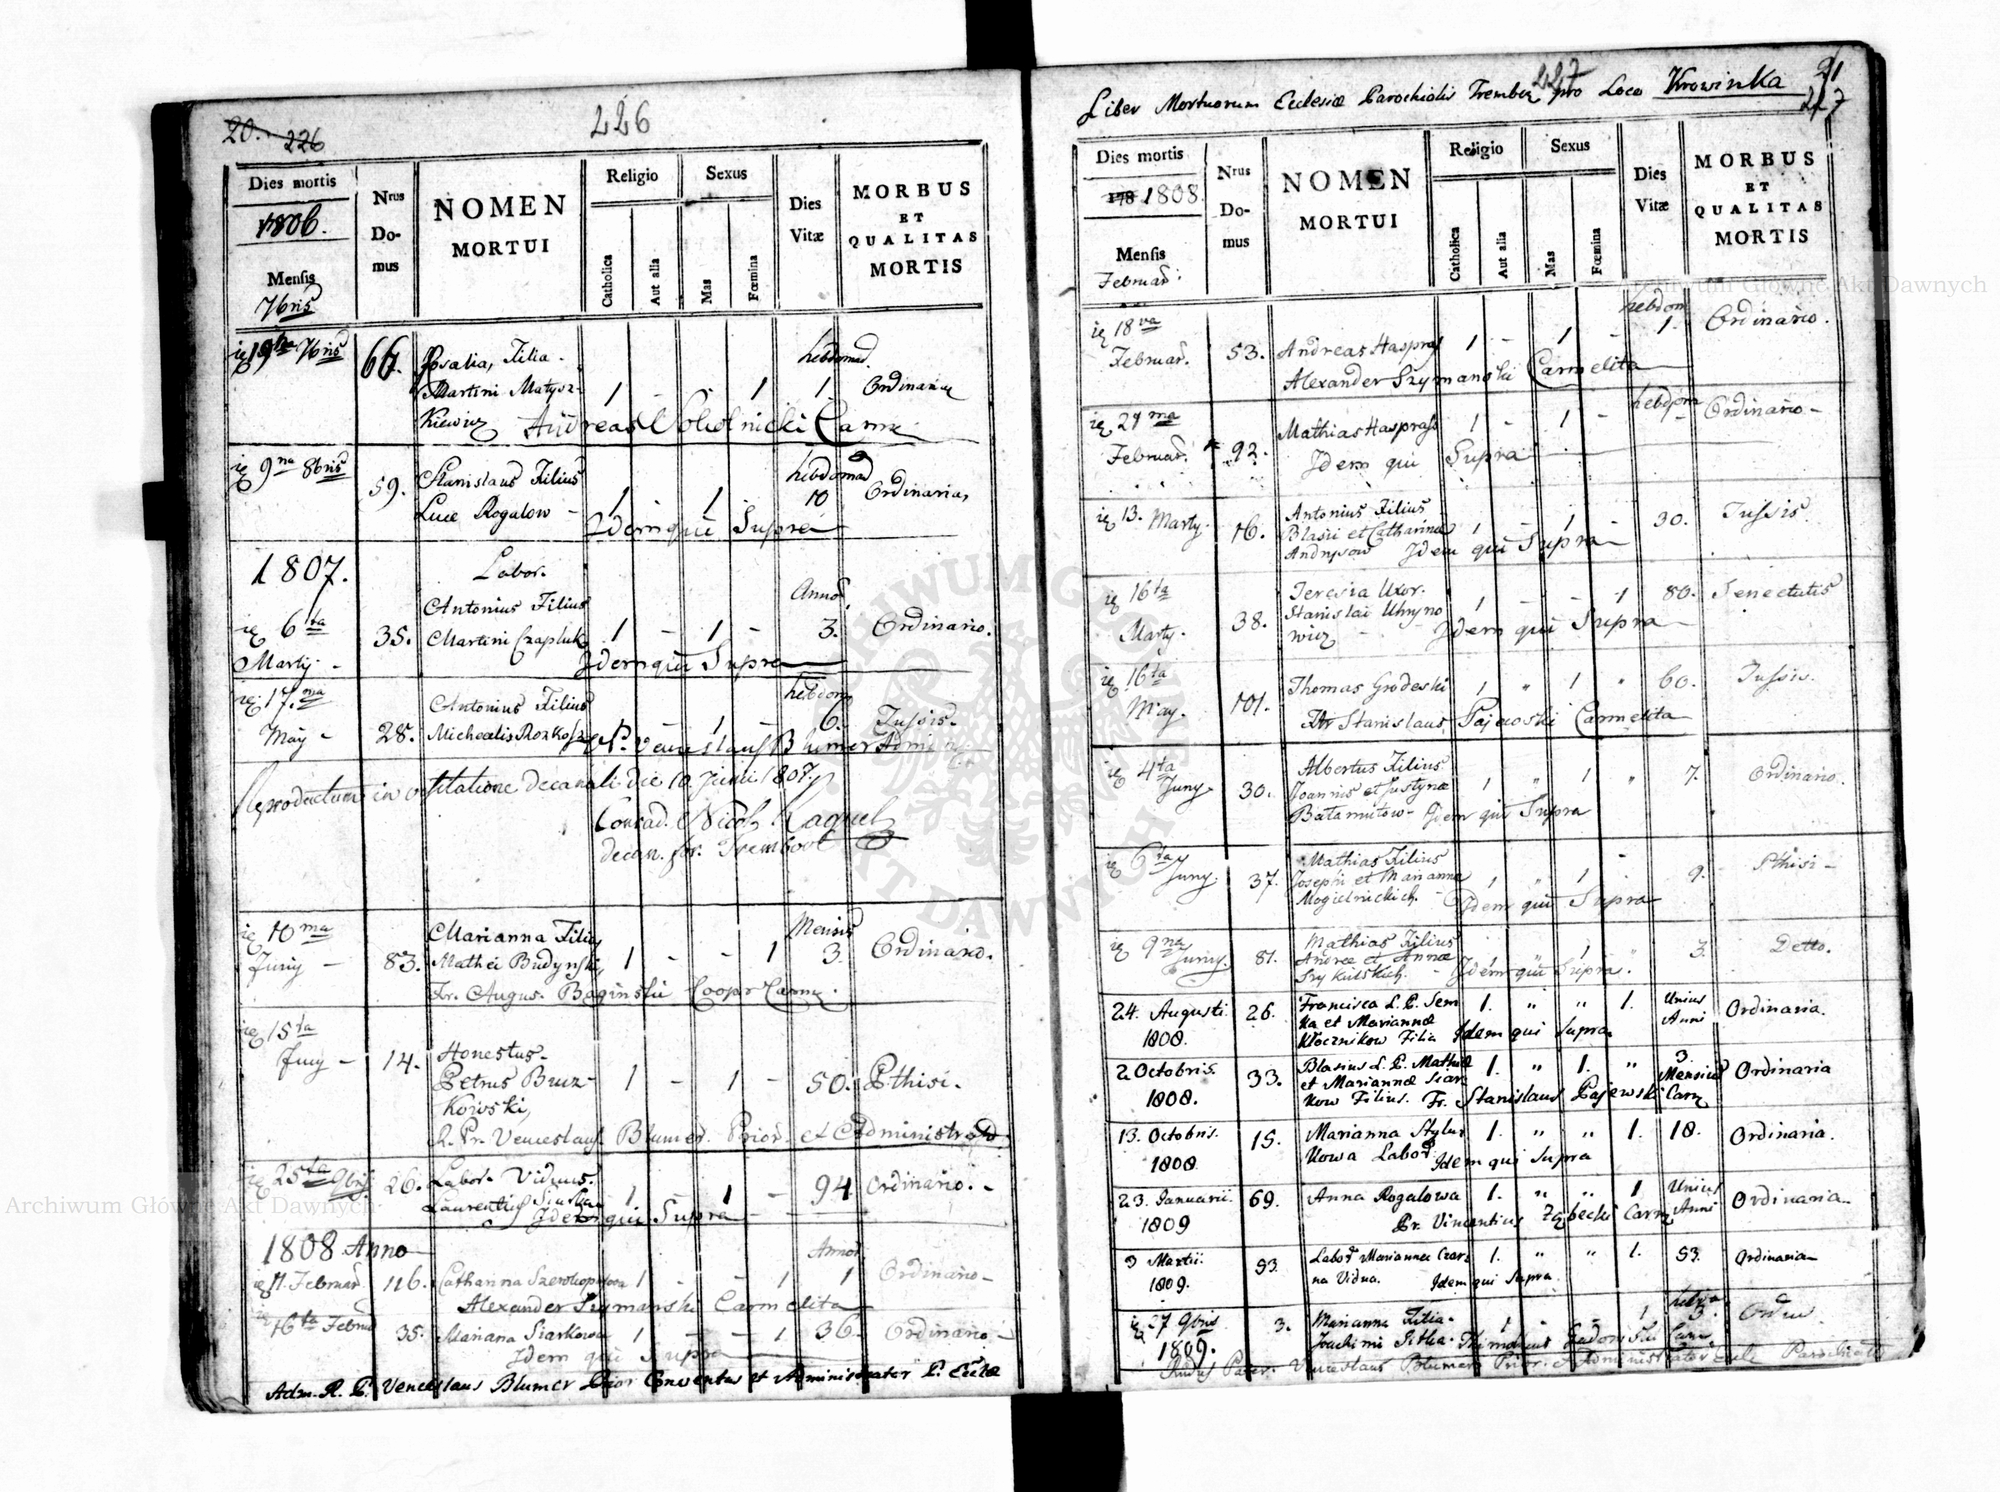 20. 226
226
Dies mortis
1806.
Mensis
7bris
Nrus
Do-
mus
NOMEN
MORTUI
Religio
Catholica
Aut alia
Sexus
Mas
Fœmina
Dies
Vitæ
MORBUS
ET
QUALITAS
MORTIS
19 7bris 66. Rosalia, Filia hebdomad.
Martini Matysz- 1 - - 1 1. Ordinaria
Kiewicz Andreas Carm.
9na 8bris 59. Stanislaus Filius hebdomad
Luce Rogalow - 1 1 10 Ordinaria,
Idem qui Supra
1807. Labor.
Antonius Filius Anno.
6ta 35. Martini Czapluk 1 - 1 - 3. Ordinario.
Marty - Idem qui Supra
17ma Antonius Filius hebdom
May - 28. Michaelis - 1 - 6. Tussis.
Venceslaus Blumer Admin
Reproductum in visitatione decanali die 10 Junii 1807
Conrad. Nicol.
decan. for. Trembovl
10ma Marianna Filia Mensis
Juny - 83. Mathei Budynski, 1 - - 1 3. Ordinario.
Fr. Augus. Baginski Coopr Carm.
15ta Honestus
Juny - 14. Petrus Bucz- 1 - 1 - 50. Pthisi.
Kowski,
R. Pr. Venceslaus Blumer Prior et Administrator
25ta 9bris 26. Labor. Viduus.
Laurentius 1 1 - 94 Ordinario. -
Idem qui Supra
1808 Anno Anno
11. Februar. 116. Catharina 1 - - 1 1 Ordinario -
Alexander Szymanski Carmelita
16ta Februar 35. Mariana Siarkowa 1 - - 1 36. Ordinario -
Idem qui Supra
Adm. R. P. Venceslaus Blumer Prior Conventus et Administrator P. Eccle
227 21
Liber Mortuorum Ecclesiæ Parochialis Trembow pro Loco Krowinka 227
Dies mortis
178 1808
Mensis
Februar.
Nrus
Do-
mus
NOMEN
MORTUI
Religio
Catholica
Aut alia
Sexus
Mas
Fœmina
Dies
Vitæ
MORBUS
ET
QUALITAS
MORTIS
18va hebdom
Februar. 53. Andreas 1 - 1 - 1. Ordinario.
Alexander Szymanski Carmelita
29ma hebdom
Februar. 92. Mathias 1 - 1 - Ordinario -
Idem qui Supra
13. Marty. 16. Antonius Filius
Blasii et Catharinæ 1 - 1 - 30. Tussis.
Idem qui Supra
16ta Teresia Uxor.
Marty. 38. Stanislai Uhryno 1 - - 1 80. Senectutis
wicz Idem qui Supra
16ta
May. 101. Thomas Grodeski 1 " 1 " 60. Tussis.
Fr Stanislaus Pajewski Carmelita
4ta Albertus Filius
Juny. 30. Joannis et Justynæ 1 " 1 " 7. Ordinario.
Batamutow - Idem qui Supra
6ta Mathias Filius
Juny. 37. Josephi et Marianna 1 " 1 - 9. Pthisi -
Mogielnickich. - Idem qui Supra
9na Mathias Filius
Juny. 81. Andreæ et Annæ 1 " 1 " 3. Detto.
Idem qui Supra.
24. Augusti 26. Francisca L. P. Sem 1. " " 1. Unius Ordinaria.
1808. ka et Mariannæ Anni
Kłocznikow Filia Idem qui Supra
2 Octobris. 33. Blasius L. P. Mathiæ 1. " 1. " 3. Ordinaria
1808. et Mariannæ Siar Mensium
kow Filius. Fr. Stanislaus Pajewski Carm
13. Octobris. 15. Marianna 1. " " 1. 18. Ordinaria.
1808 Idem qui Supra
23. Januarii. 69. Anna Rogalowa 1. " " 1 Unius Ordinaria.
1809 Pr. Vincentius Carm. Anni
9 Martii 93. Labor Mariannæ Czar 1. " " 1. 53. Ordinaria
1809. na Vidua. Idem qui Supra
27 9bris 3. Marianna Filia 1 " " 1 3. Ordin
1809. Joachimi
Pater Venceslaus Blumer Prior Administrator
Archiwum Główne Akt Dawnych
Archiwum Główne Akt Dawnych
ARCHIWUM GŁÓWNE AKT DAWNYCH